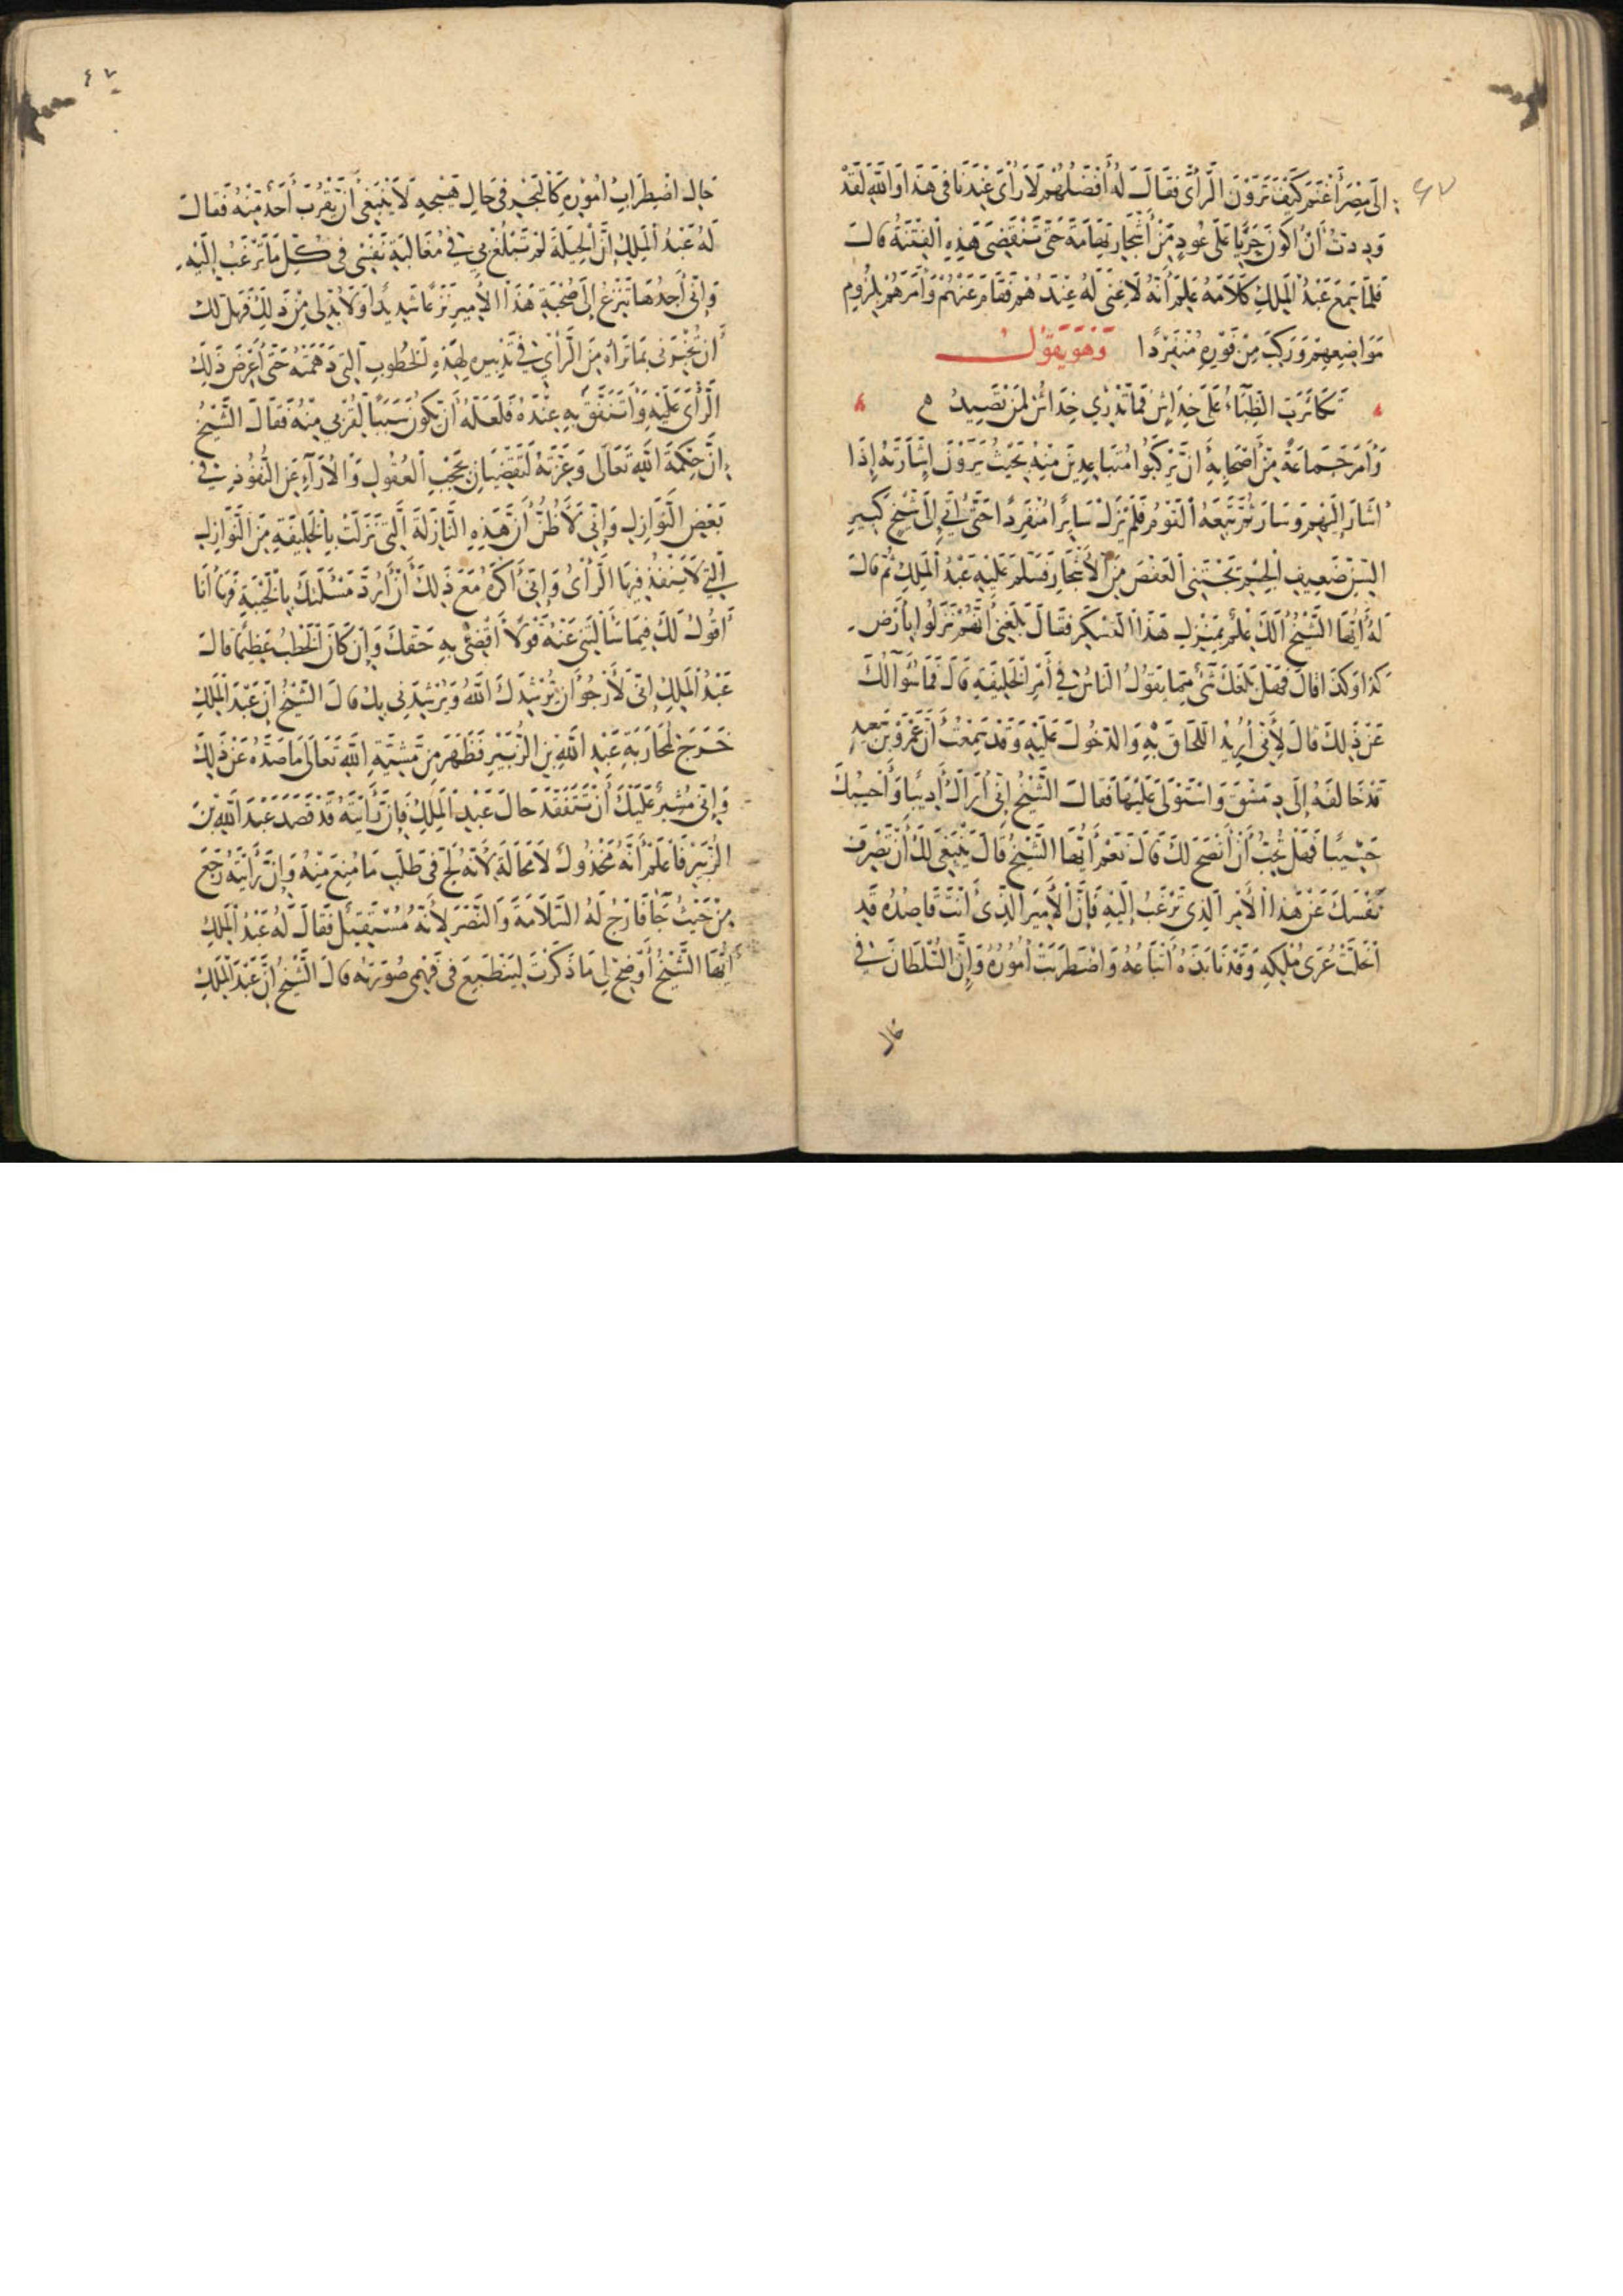 إِلَى مِصْرَ أَغْنَتْمَ كَيْفَ تَرَوْنَ الرَّأْىَ فَقَالَ لَهُ أَفْضَلُهُمْ لَا رَأْىَ عِنْدَنَا فِى هَذَا وَاللَّهِ لَقَدْ
وَدِدْتُ أَنْ أَكُونَ حَرْبًا عَلَى عُودٍ مِنْ أَشْجَارِ تِهَامَةَ حَتَّى تَنْقَضِىَ هَذِهِ الْفِتْنَةُ قَالَ
فَلَمَّا سَمِعَ عَبْدُ الْمَلِكِ كَلَامَهُ عَلِمَ أَنَّهُ لَا غِنَى لَهُ عِنْدَهُمْ فَقَامَ عَنْهُمْ وَأَمَرَهُمْ بِلُزُومِ
مَوَاضِعِهِمْ وَرَكِبَ مِنْ فَوْرِهِ مُنْفَرِدًا وَهُوَ يَقُولُ
تَكَاثَرَتِ الظِّبَاءُ عَلَى خِدَاشٍ فَمَا تَدْرِي خِدَاشٌ لِمَنْ تَصِيدُ
وَأَمَرَ جَمَاعَةً مِنْ أَصْحَابِهِ أَنْ يَرْكَبُوا مُتَبَاعِدِينَ مِنْهُ بِحَيْثُ يَرَوْنَ إِشَارَتَهُ إِذَا
أَشَارَ إِلَيْهِمْ وَسَارَ ثُمَّ تَبِعَهُ الْقَوْمُ فَلَمْ يَزَلْ سَائِرًا مُنْفَرِدًا حَتَّى أَتَى إِلَى شَيْخٍ كَبِيرِ
السِّنِّ ضَعِيفِ الْجِسْمِ يَجْتَنِى الْعَفْصَ مِنَ الْأَشْجَارِ فَسَلَّمَ عَلَيْهِ عَبْدُ الْمَلِكِ ثُمَّ قَالَ
لَهُ أَيُّهَا الشَّيْخُ أَلَكَ عِلْمٌ بِمَنْزِلِ هَذَا الْعَسْكَرِ فَقَالَ بَلَغَنِى أَنَّهُمْ نَزَلُوا بِأَرْضِ
كَذَا وَكَذَا قَالَ فَهَلْ بَلَغَكَ شَىْءٌ مِمَّا يَقُولُ النَّاسُ فِى أَمْرِ الْخَلِيفَةِ قَالَ فَمَا سُؤَالُكَ
عَنْ ذَلِكَ قَالَ لِأَنِّى أُرِيدُ اللَّحَاقَ بِهِ وَالدُّخُولَ عَلَيْهِ وَقَدْ سَمِعْتُ أَنَّ عَمْرَو بْنَ سَعِيدٍ
قَدْ خَالَفَهُ إِلَى دِمَشْقَ وَاسْتَوْلَى عَلَيْهَا فَقَالَ الشَّيْخُ إِنِّى أَرَاكَ أَدِيبًا وَأَحْسِبُكَ
حَسِيبًا فَهَلْ تُحِبُّ أَنْ أَنْصَحَ لَكَ قَالَ نَعَمْ أَيُّهَا الشَّيْخُ قَالَ يَنْبَغِى لَكَ أَنْ تَصْرِفَ
نَفْسَكَ عَنْ هَذَا الْأَمْرِ الَّذِى تَرْغَبُ إِلَيْهِ فَإِنَّ الْأَمِيرَ الَّذِى أَنْتَ قَاصِدُهُ قَدِ
انْحَلَّتْ عُرَى مُلْكِهِ وَقَدْ نَابَذَهُ أَتْبَاعُهُ وَاضْطَرَبَتْ أُمُورُهُ وَإِنَّ السُّلْطَانَ فِى
حَال
٤٧
حَالِ اضْطِرَابِ أُمُورِهِ كَالْبَحْرِ فِى حَالِ هَيْجِهِ لَا يَنْبَغِى أَنْ يَقْرُبَ أَحَدٌ مِنْهُ فَقَالَ
لَهُ عَبْدُ الْمَلِكِ إِنَّ الْحِيلَةَ لَمْ تَبْلُغْ بِى فِى مُغَالَبَةِ نَفْسِى فِى كُلِّ مَا تَرْغَبُ إِلَيْهِ
وَإِنِّى أَجِدُهَا تَنْزِعُ إِلَى صُحْبَةِ هَذَا الْأَمِيرِ نَزْعًا شَدِيدًا وَلَا بُدَّ لِى مِنْ ذَلِكَ فَهَلْ لَكَ
أَنْ تُخْبِرَنِى بِمَا تَرَاهُ مِنَ الرَّأْىِ فِى تَدْبِيرِهِ لِهَذِهِ الْخُطُوبِ الَّتِى دَهَمَتْهُ حَتَّى أَعْرِضَ ذَلِكَ
الرَّأْىَ عَلَيْهِ وَأَتَنَفَّقَ بِهِ عِنْدَهُ فَلَعَلَّهُ أَنْ يَكُونَ سَبَبًا لِقُرْبِى مِنْهُ فَقَالَ الشَّيْخُ
إِنَّ حِكْمَةَ اللَّهِ تَعَالَى وَعِزَّتَهُ لَتَقْضِيَانِ بِحَجْبِ الْعُقُولِ وَالْآرَاءِ عَنِ النُّفُوذِ فِى
بَعْضِ النَّوَازِلِ وَإِنِّى لَأَظُنُّ أَنَّ هَذِهِ النَّازِلَةَ الَّتِى نَزَلَتْ بِالْخَلِيفَةِ مِنَ النَّوَازِلِ
الَّتِى لَا يَنْفُذُ فِيهَا الرَّأْىُ وَإِنِّى أَكْرَهُ مَعَ ذَلِكَ أَنْ أَرُدَّ مَسْئَلَتَكَ بِالْخَيْبَةِ فَهَا أَنَا
أَقُولُ لَكَ فِيمَا سَأَلْتَنِى عَنْهُ قَوْلًا أَقْضِى بِهِ حَقَّكَ وَإِنْ كَانَ الْخَطْبُ عَظِيمًا قَالَ
عَبْدُ الْمَلِكِ إِنِّى لَأَرْجُو أَنْ يُرْشِدَكَ اللَّهُ وَيُرْشِدَنِى بِكَ قَالَ الشَّيْخُ إِنَّ عَبْدَ الْمَلِكِ
خَرَجَ لِمُحَارَبَةِ عَبْدِ اللَّهِ بْنِ الزُّبَيْرِ فَظَهَرَ مِنْ مَشِيَّةِ اللَّهِ تَعَالَى مَا صَدَّهُ عَنْ ذَلِكَ
وَإِنِّى مُشِيرٌ عَلَيْكَ أَنْ تَتَفَقَّدَ حَالَ عَبْدِ الْمَلِكِ فَإِنْ رَأَيْتَهُ قَدْ قَصَدَ عَبْدَ اللَّهِ بْنَ
الزُّبَيْرِ فَاعْلَمْ أَنَّهُ مَخْذُولٌ لَا مَحَالَةَ لِأَنَّهُ لَجَّ فِى طَلَبِ مَا مُنِعَ مِنْهُ وَإِنْ رَأَيْتَهُ رَجَعَ
مِنْ حَيْثُ جَاءَ فَارْجُ لَهُ السَّلَامَةَ وَالنَّصْرَ لِأَنَّهُ مُسْتَقِيلٌ فَقَالَ لَهُ عَبْدُ الْمَلِكِ
أَيُّهَا الشَّيْخُ أَوْضِحْ لِى مَا ذَكَرْتَ لِيَنْطَبِعَ فِى فَهْمِى صُورَتُهُ قَالَ الشَّيْخُ إِنَّ عَبْدَ الْمَلِكِ